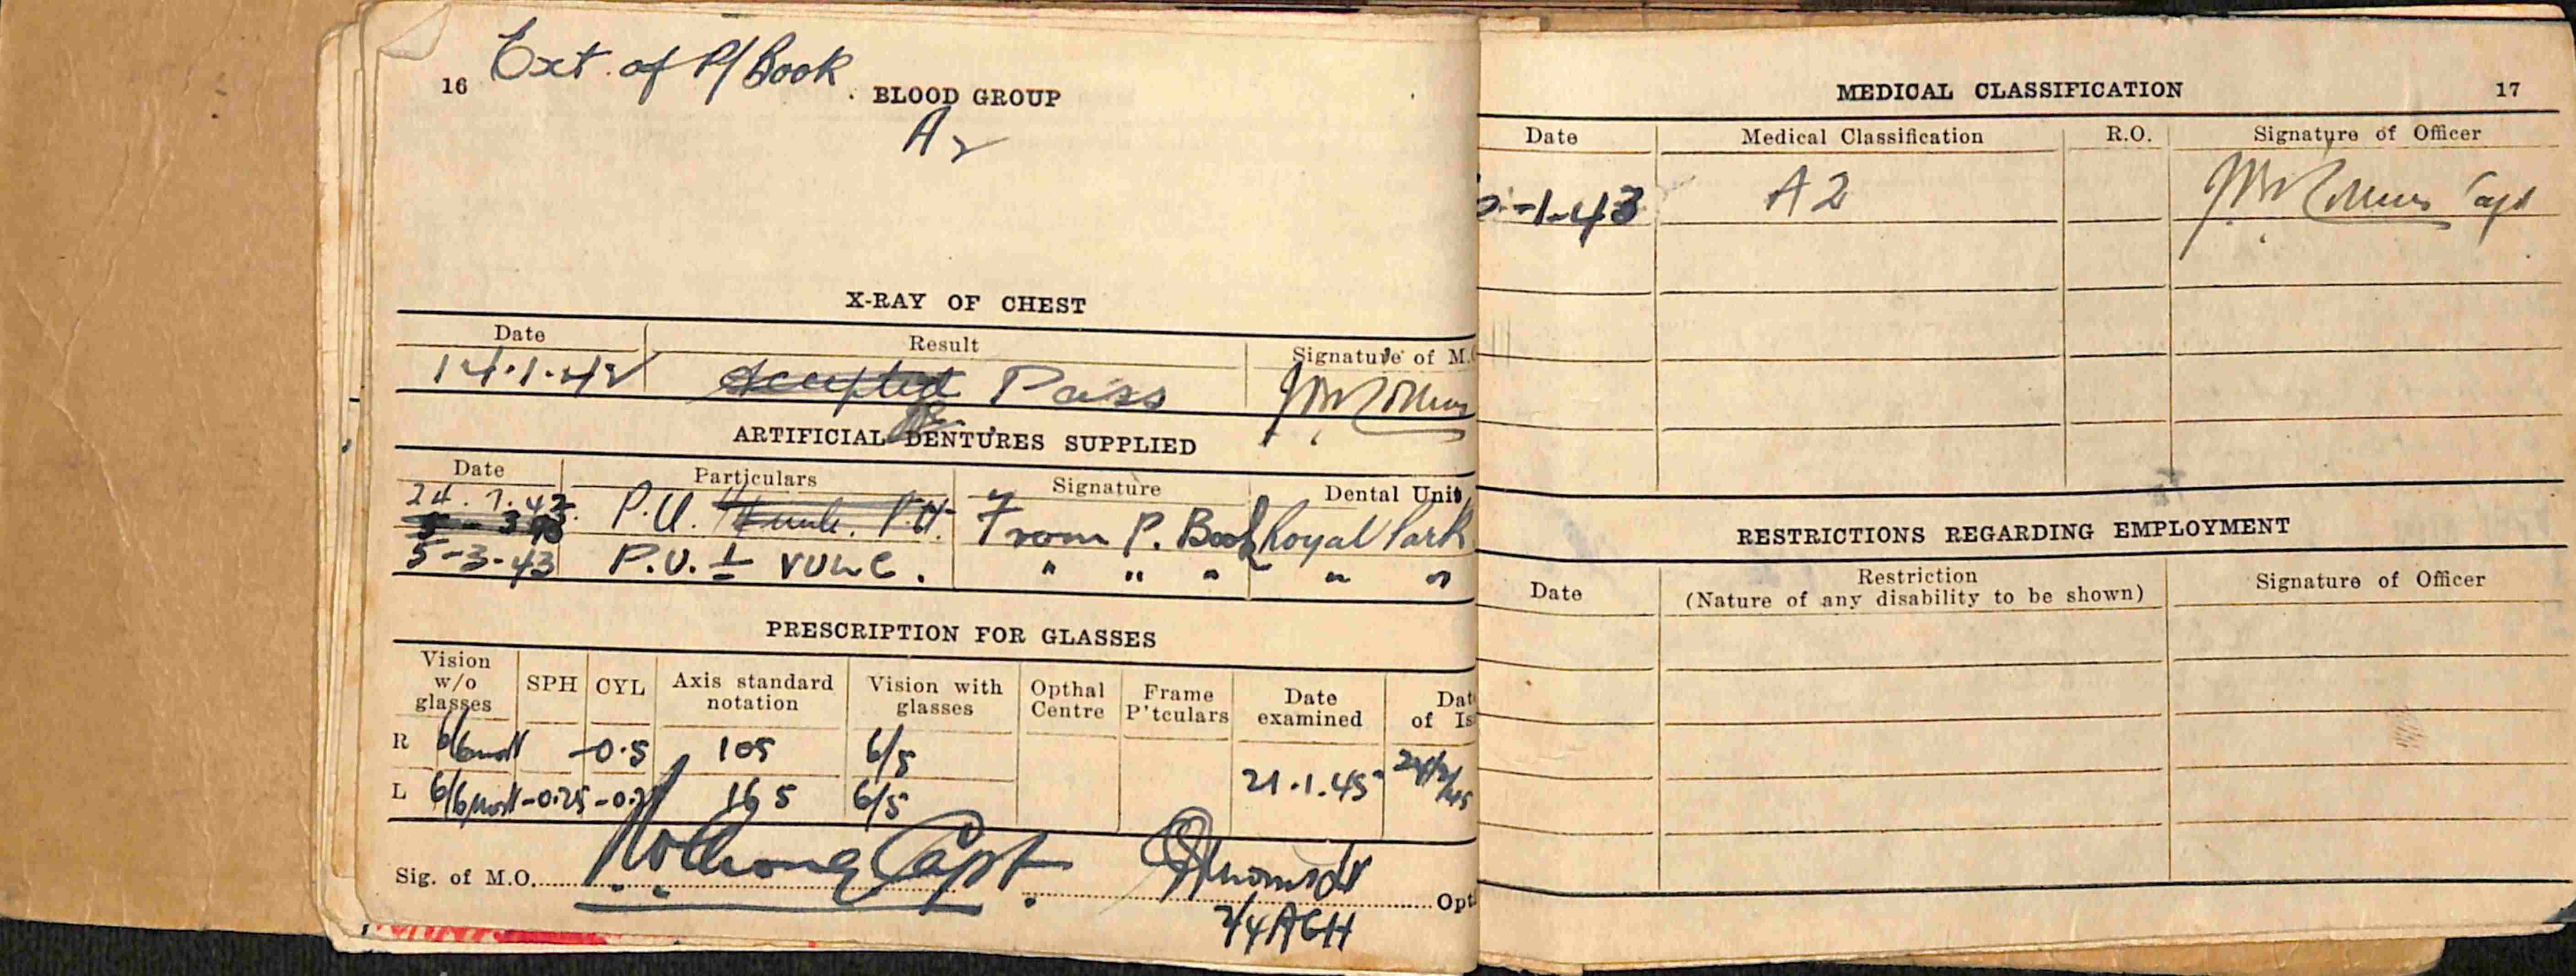 16 Ext. of P/Book
BLOOD GROUP
A2
X-RAY OF CHEST
Date Result Signature of M.
14.1.42 Accepted Pass
ARTIFICIAL DENTURES SUPPLIED
Date Particulars Signature Dental Unit
24.7.42 P.U. From P. Book Royal Park
5-3-43
5-3-43 P.U. 1 VULC. " " " " "
PRESCRIPTION FOR GLASSES
Vision w/o glasses SPH CYL Axis standard notation Vision with glasses Opthal Centre Frame P'tculars Date examined Dat of Is
R 6/6 -0.5 105 6/5
21.1.45
L 6/6 -0.25 165 6/5
Sig. of M.O. Capt Opt
2/4 AGH
MEDICAL CLASSIFICATION 17
Date Medical Classification R.O. Signature of Officer
-1-43 A2 Capt
RESTRICTIONS REGARDING EMPLOYMENT
Date Restriction (Nature of any disability to be shown) Signature of Officer